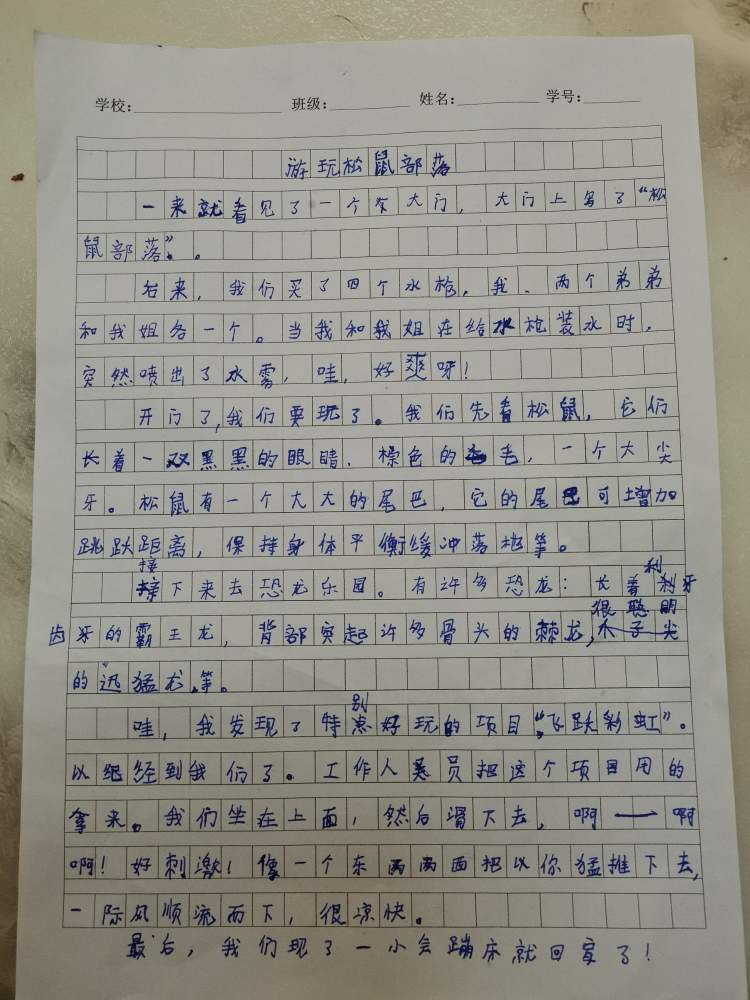 学校: 班级: 姓名: 学号:
游玩松鼠部落
一来就看见了一个大门，大门上写了“松
鼠部落”。
后来，我们买了四个水枪，我、两个弟弟
和我姐各一个。当我和我姐在给水枪装水时，
突然喷出了水雾，哇，好爽呀！
开门了，我们要玩了。我们先看松鼠，它们
长着一双黑黑的眼睛，棕色的毛，一个大尖
牙。松鼠有一个大大的尾巴，它的尾巴可增加
跳跃距离，保持身体平衡缓冲落地等。
接
下来去恐龙乐园。有许多恐龙：长着利牙
利
很聪明
齿牙的霸王龙，背部突起许多骨头的棘龙，
的迅猛龙等。
别
哇，我发现了特好玩的项目“飞跃彩虹”。
以经到我们了。工作人员把这个项目用的
拿来。我们坐在上面，然后滑下去，啊——啊
啊！好刺激！像一个东西面把以你猛推下去，
一际风顺流而下，很凉快。
最后，我们玩了一小会蹦床就回家了！